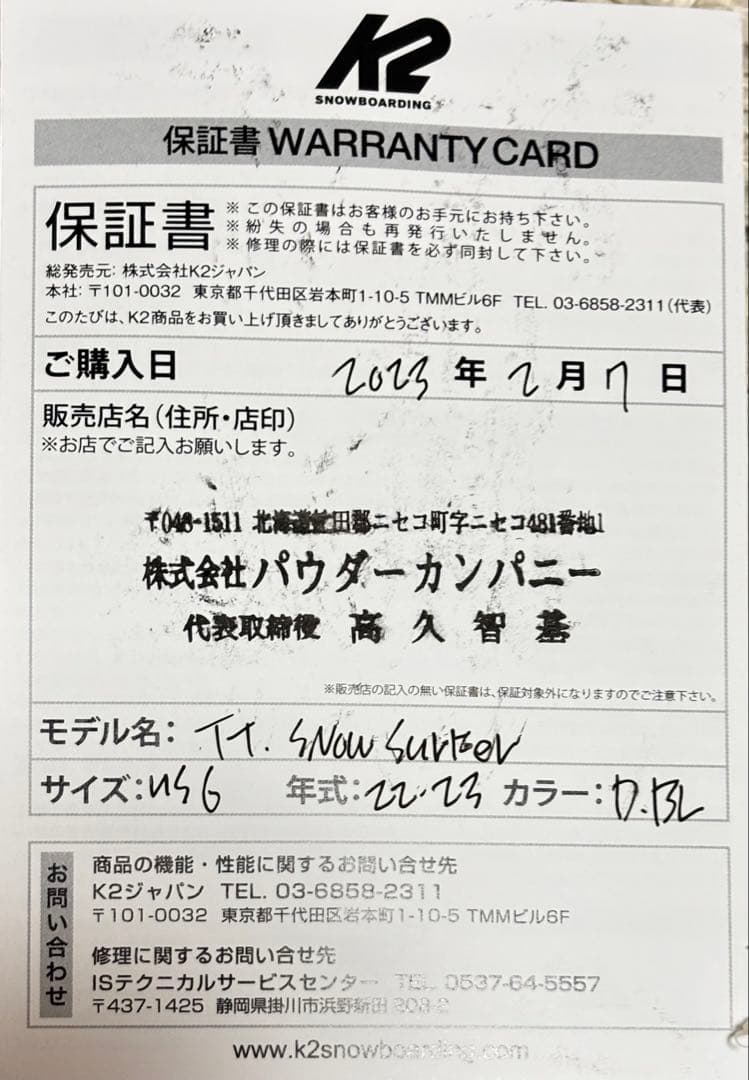 K2
SNOWBOARDING
保証書 WARRANTY CARD
保証書
※ この保証書はお客様のお手元にお持ち下さい。
※ 紛失の場合も再発行いたしません。
※ 修理の際には保証書を必ず同封して下さい。
総発売元: 株式会社K2ジャパン
本社: 〒101-0032 東京都千代田区岩本町1-10-5 TMMビル6F TEL. 03-6858-2311(代表)
このたびは、K2商品をお買い上げ頂きましてありがとうございます。
ご購入日 2023 年 2 月 7 日
販売店名(住所・店印)
※お店でご記入お願いします。
〒048-1511 北海道虻田郡ニセコ町字ニセコ481番地1
株式会社パウダーカンパニー
代表取締役 高久智基
※販売店の記入の無い保証書は、保証対象外になりますのでご注意下さい。
モデル名: TT. SNOW SURFER
サイズ: US 6 年式: 22-23 カラー: D.BL
お問い合わせ
商品の機能・性能に関するお問い合せ先
K2ジャパン TEL. 03-6858-2311
〒101-0032 東京都千代田区岩本町1-10-5 TMMビル6F
修理に関するお問い合せ先
ISテクニカルサービスセンター TEL. 0537-64-5557
〒437-1425 静岡県掛川市浜野新田 208-2
www.k2snowboarding.com